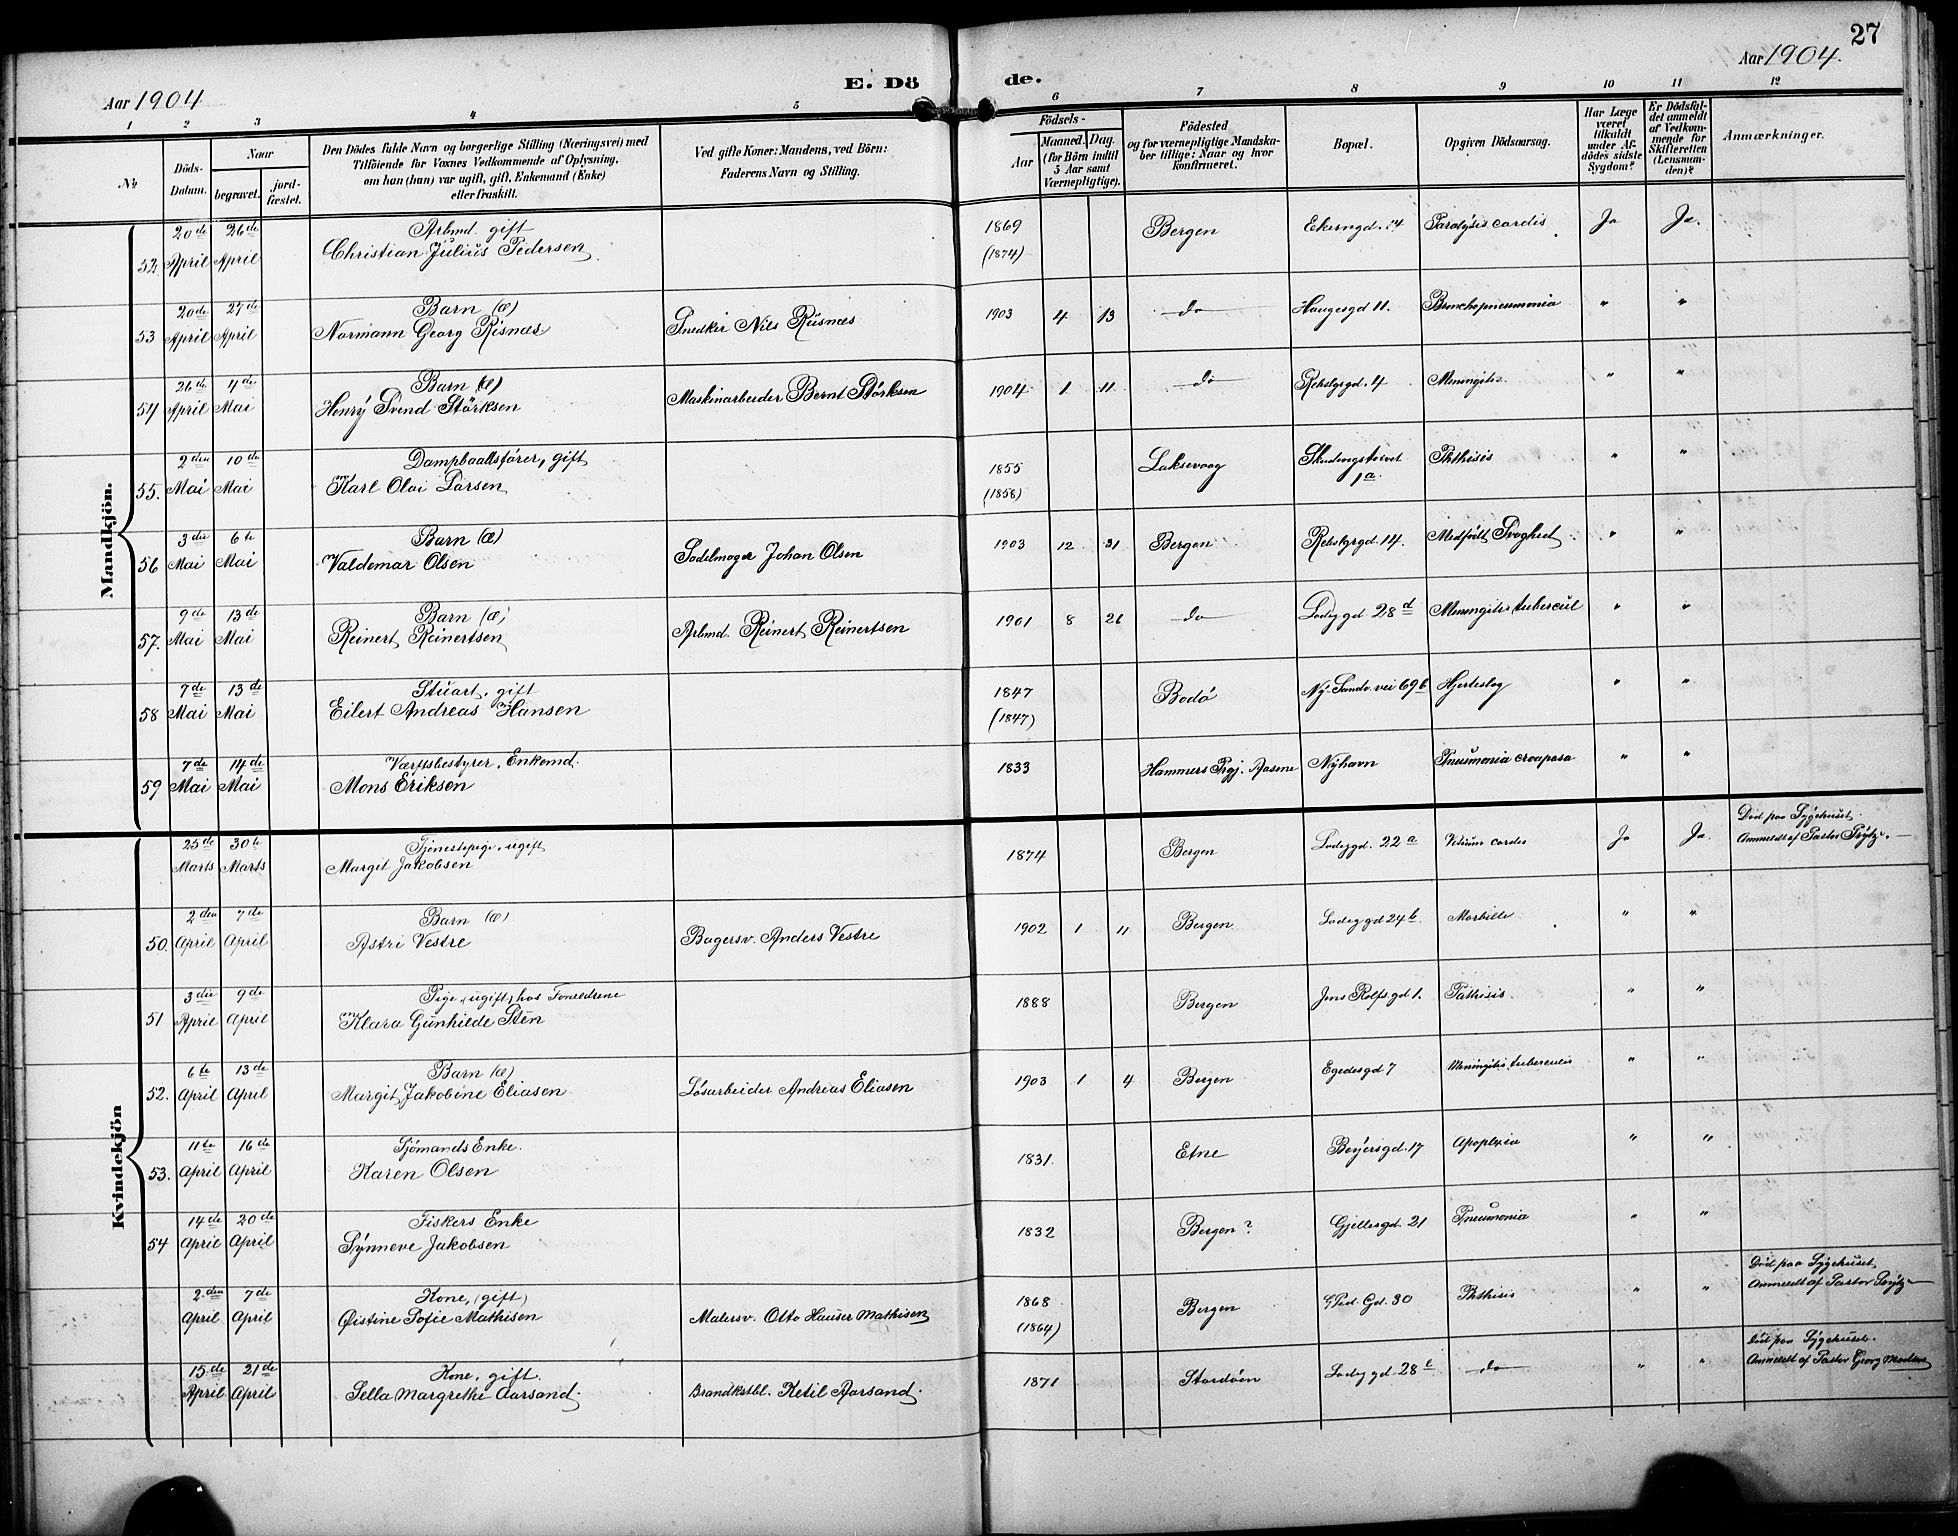 27
Aar 1904.
E. Dö de.
Aar 1904.
1 2 3 4 5 6 7 8 9 10 11 12
№
Döds-Datum.
Naar
begravet.
jordfæstet.
Den Dödes fulde Navn og borgerlige Stilling (Næringsvei) med
Tilföiende for Voxnes Vedkommende af Oplysning,
om han (hun) var ugift, gift, Enkemand (Enke)
eller fraskilt.
Ved gifte Koner: Mandens, ved Börn:
Faderens Navn og Stilling.
Födsels-
Aar
Maaned. Dag.
(for Börn indtil
5 Aar samt
Værnepligtige).
Födested
og for værnepligtige Mandskaber tillige: Naar og hvor
konfirmeret.
Bopæl.
Opgiven Dödsaarsag.
Har Læge
været
tilkaldt
under Afdödes sidste
Sygdom?
Er Dödsfaldet anmeldt
af Vedkommende for
Skifteretten
(Lensmanden)?
Anmærkninger.
Mandkjön.
20de 26de Arbmd. gift 1869 Bergen Ekerngd. 14 Paralysis cordis Ja Ja.
52 April April Christian Julius Pedersen (1874)
20de 27de Barn (æ) 1903 4 13 do Haugesgd 11. Bronchopneumonia " "
53 April April Normann Georg Risnæs Snedker Nils Riisnæs
26de 4de Barn (æ) 1904 1 11 do Rebslgrgd. 4 Meningitis " "
54 April Mai Henry Svend Störksen Maskinarbeider Bernt Störksen
2den 10de Dampbaadsfører, gift 1855 Laksevaag 1a Phthisis " "
55. Mai Mai Karl Olai Larsen (1856)
3die 6te Barn (æ) 1903 12 31 Bergen Rebslgrgd. 14. Medfödt Svaghed " "
56 Mai Mai Valdemar Olsen Sadelmager Johan Olsen
9de 13de Barn (æ) 1901 8 26 do Ladeggd 28d Meningitis tubercul " "
57. Mai Mai Reinert Reinertsen Arbmd. Reinert Reinertsen
7de 13de Stuart, gift 1847 Bodö Ny-Sandv. vei 69b Hjerteslag " "
58 Mai Mai Eilert Andreas Hansen (1847)
7de 14de Værftsbestyrer, Enkemd. 1833 Hammers Prgj. Aasene Nyhavn Pneumonia crouposa " "
59 Mai Mai Mons Eriksen
Kvindekjön
25de 30te Tjenestepige, ugift 1874 Bergen Ladeggd. 22a Vitium cordis Ja Ja. Död paa Sygehuset.
Marts Marts Margit Jakobsen Anmeldt af Pastor Prytz.
2den 7de Barn (æ) 1902 1 11 Bergen Ladeg gd 24b. Morbilli " "
50. April April Astri Vestre Bagersv. Anders Vestre
3die 9de Pige, ugift, hos Forældrene 1888 Bergen Jens Rolfs gd 1. Pathisis. " "
51 April April Klara Gunhilde Sten
6te 13de Barn (æ) 1903 1 4 Bergen Egedesgd 7 Meningitis tuberculis " "
52. April April Margit Jakobine Eliasen Løsarbeider Andreas Eliasen
11te 16de Sjömands Enke. 1831. Etne Beyersgd. 17 Apoplexia " "
53. April April Karen Olsen
14de 20de Fiskers Enke 1832 Bergen? Gjellesgd. 21 Pneumonia " "
54 April April Synneve Jakobsen
2den 7de Kone, (gift) 1868 Bergen Gd. 30 Phthisis " " Död paa Sygehuset,
April April Øistine Sofie Mathisen Malersv. Otto Hauser Mathisen (1864) Anmeldt af Pastor Prytz
15de 21de Kone, gift. 1871 Stordöen Ladeg gd. 28 do " " Död paa Sygehuset.
April April Sella Margrethe Aarsand. Brandkstbl. Ketil Aarsand. Anmeldt af Pastor Georg